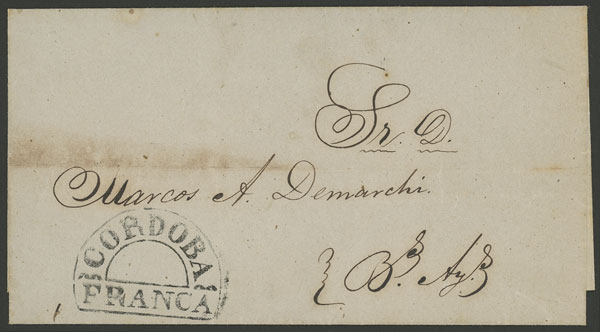 Sr. D.
Marcos A. Demarchi.
Bs. Ays.
CORDOBA
FRANCA